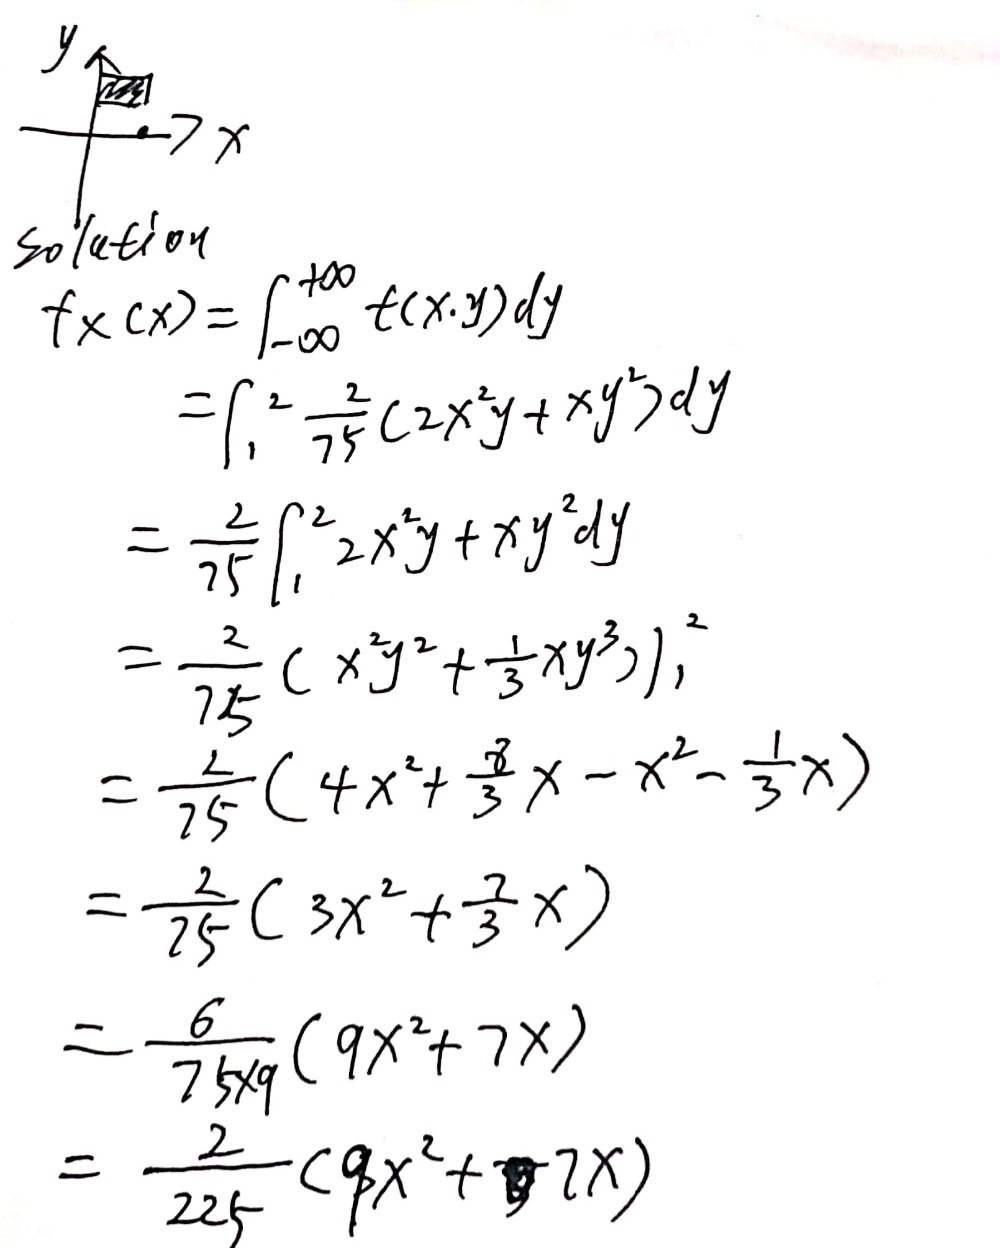 y
x
solution
fx(x) = ∫_{-∞}^{+∞} f(x.y)dy
= ∫_1^2 2/75 (2x²y + xy²)dy
= 2/75 ∫_1^2 2x²y + xy²dy
= 2/75 (x²y² + 1/3 xy³)|_1^2
= 2/75 (4x² + 8/3 x - x² - 1/3 x)
= 2/75 (3x² + 7/3 x)
= 6/75×9 (9x² + 7x)
= 2/225 (9x² + 7x)